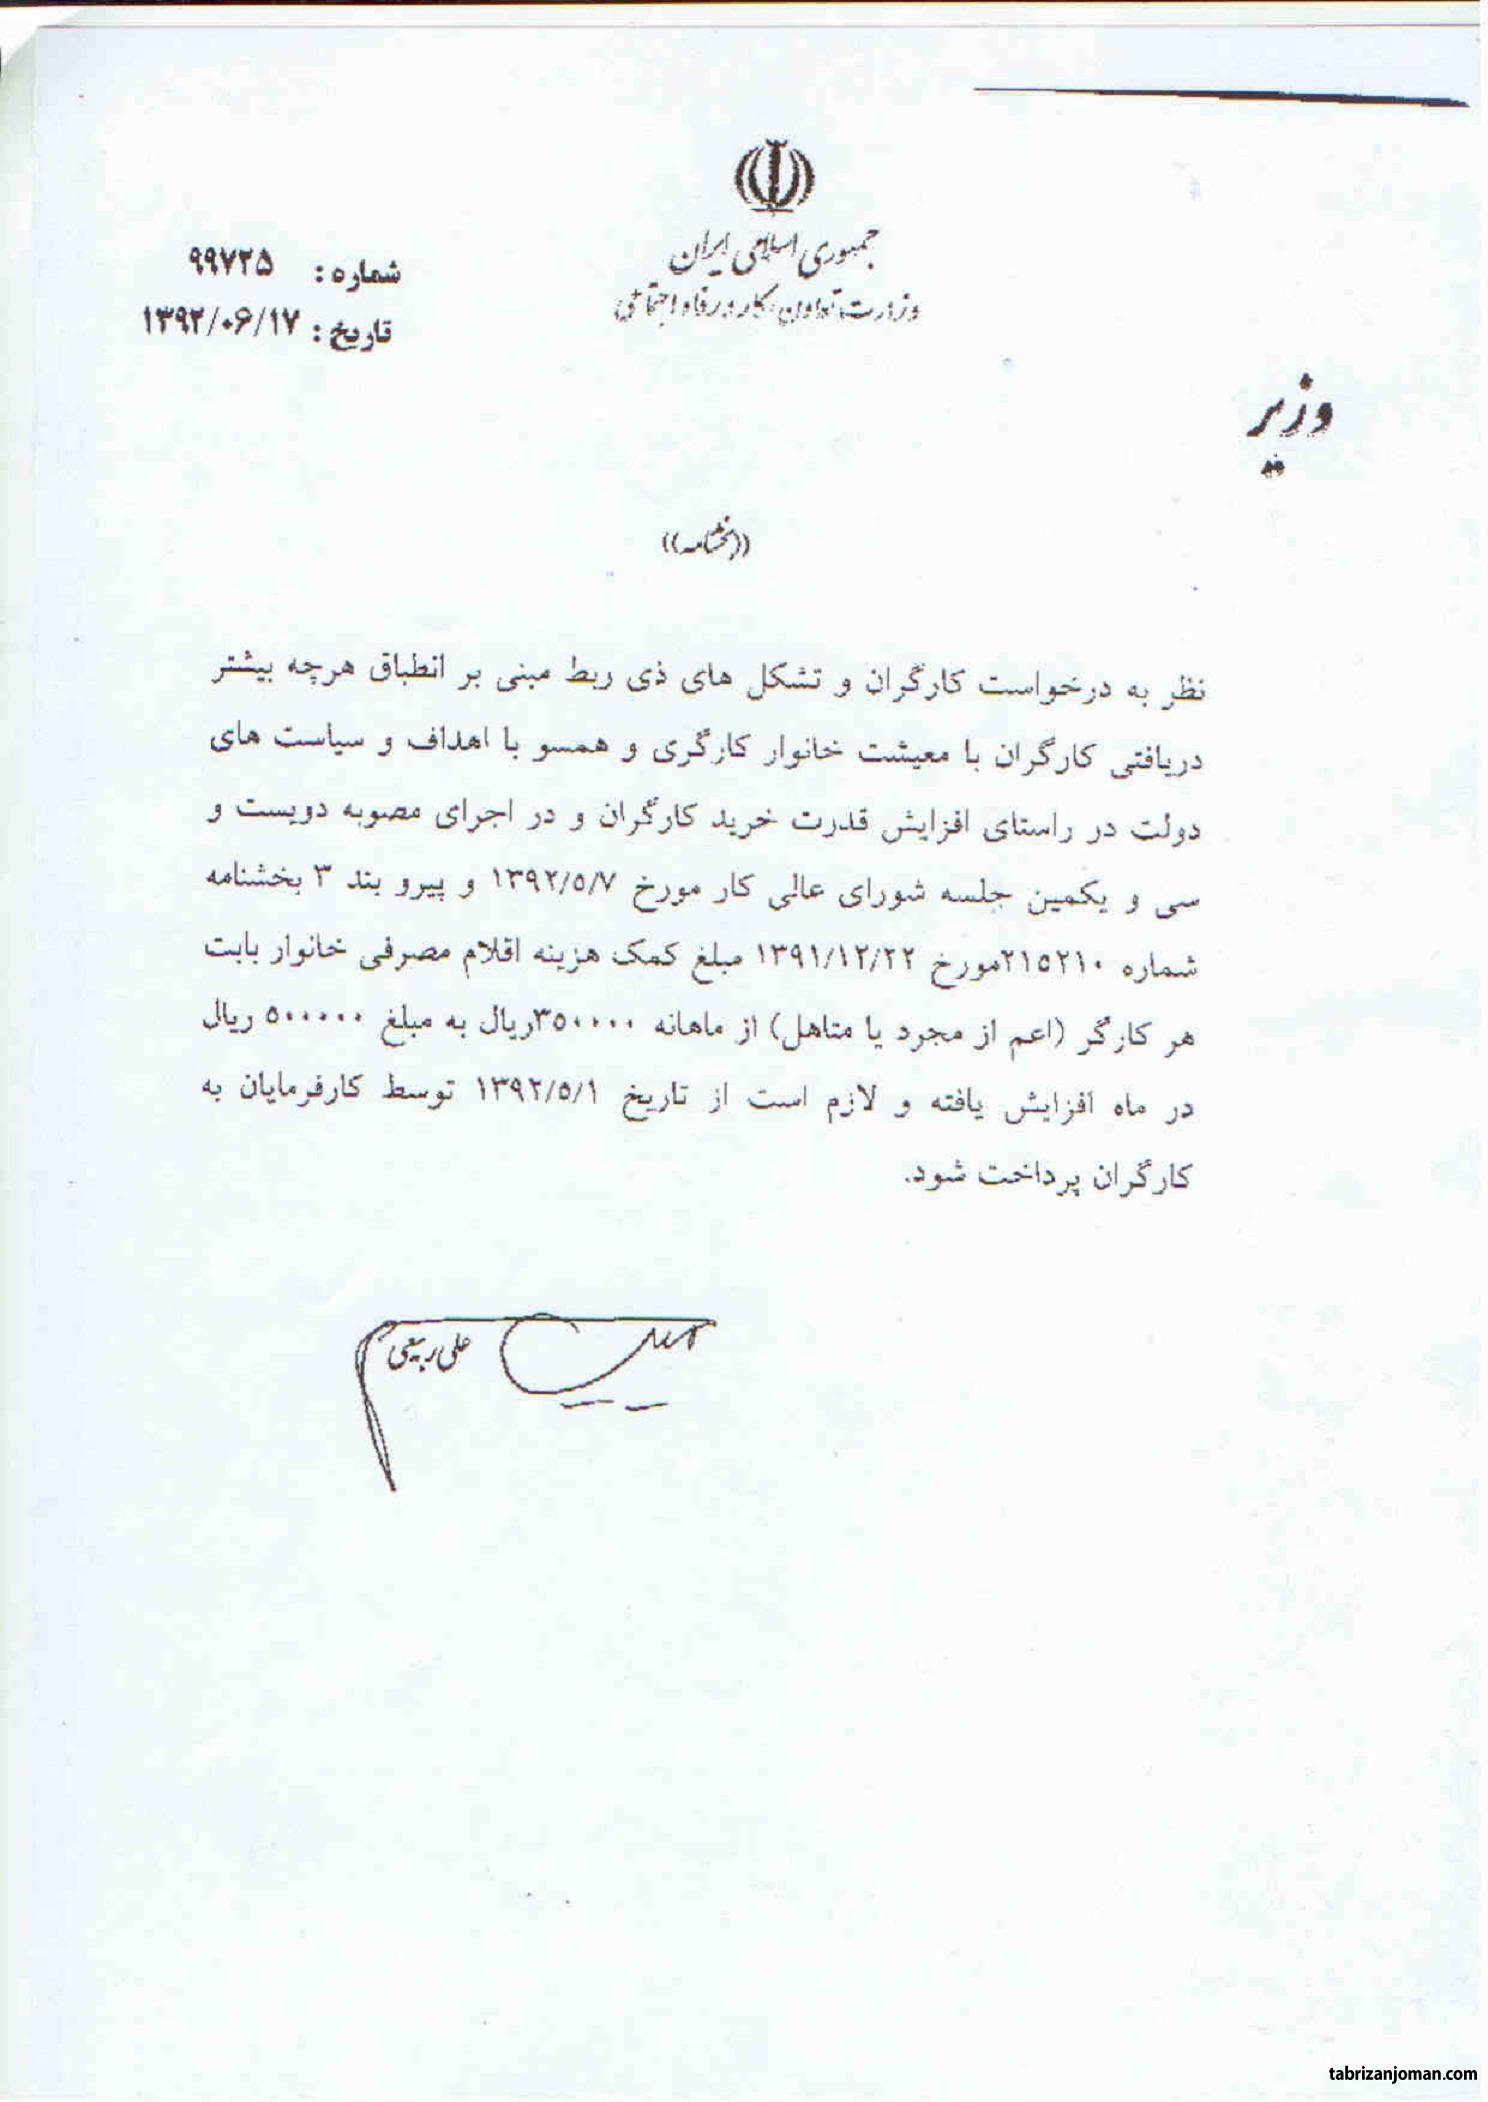 جمهوری اسلامی ایران
وزارت تعاون، کار و رفاه اجتماعی
شماره : ۹۹۷۲۵
تاریخ : ۱۳۹۲/۰۶/۱۷
وزیر
((بخشنامه))
نظر به درخواست کارگران و تشکل های ذی ربط مبنی بر انطباق هرچه بیشتر
دریافتی کارگران با معیشت خانوار کارگری و همسو با اهداف و سیاست های
دولت در راستای افزایش قدرت خرید کارگران و در اجرای مصوبه دویست و
سی و یکمین جلسه شورای عالی کار مورخ ۱۳۹۲/۵/۷ و پیرو بند ۳ بخشنامه
شماره ۲۱۵۲۱۰مورخ ۱۳۹۱/۱۲/۲۲ مبلغ کمک هزینه اقلام مصرفی خانوار بابت
هر کارگر (اعم از مجرد یا متاهل) از ماهانه ۳۵۰۰۰۰ریال به مبلغ ۵۰۰۰۰۰ ریال
در ماه افزایش یافته و لازم است از تاریخ ۱۳۹۲/۵/۱ توسط کارفرمایان به
کارگران پرداخت شود.
علی ربیعی
tabrizanjoman.com